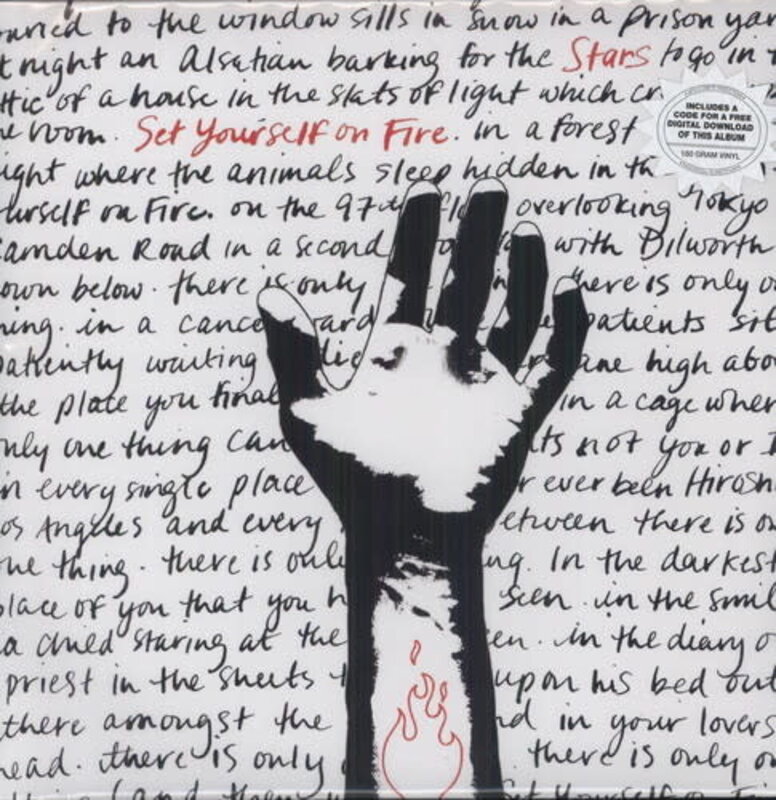 to the window sills in snow in a prison
night an Alsatian barking for the Stars to go in
of a house in the slats of light which
room. Set Yourself on Fire. in a forest
where the animals sleep hidden in
on Fire. on the 97th overlooking Tokyo
Camden Road in a second with Dilworth
down below. there is only there is only
in a patients sit
patiently waiting high
the place you
only one thing can its not you or I
in every single place or ever been
Los Angeles and every between there is
one thing. there is only In the darkest
place of you that you seen. in the
a child staring at the in the diary
priest in the sheets upon his bed out
there amongst the in your lovers
head. there is only there is only
INCLUDES A
CODE FOR A FREE
DIGITAL DOWNLOAD
OF THIS ALBUM
180 GRAM VINYL